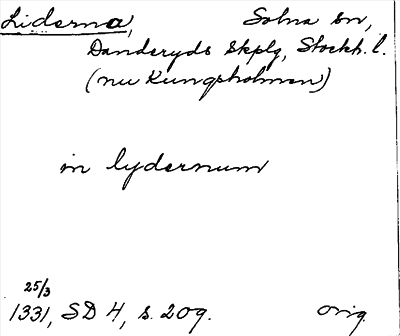 Liderna, Solna sn,
Danderyds skplg, Stockh. l.
(nu Kungsholmen)
in lydernum
25/3
1331, SD 4, s. 209.
Orig.